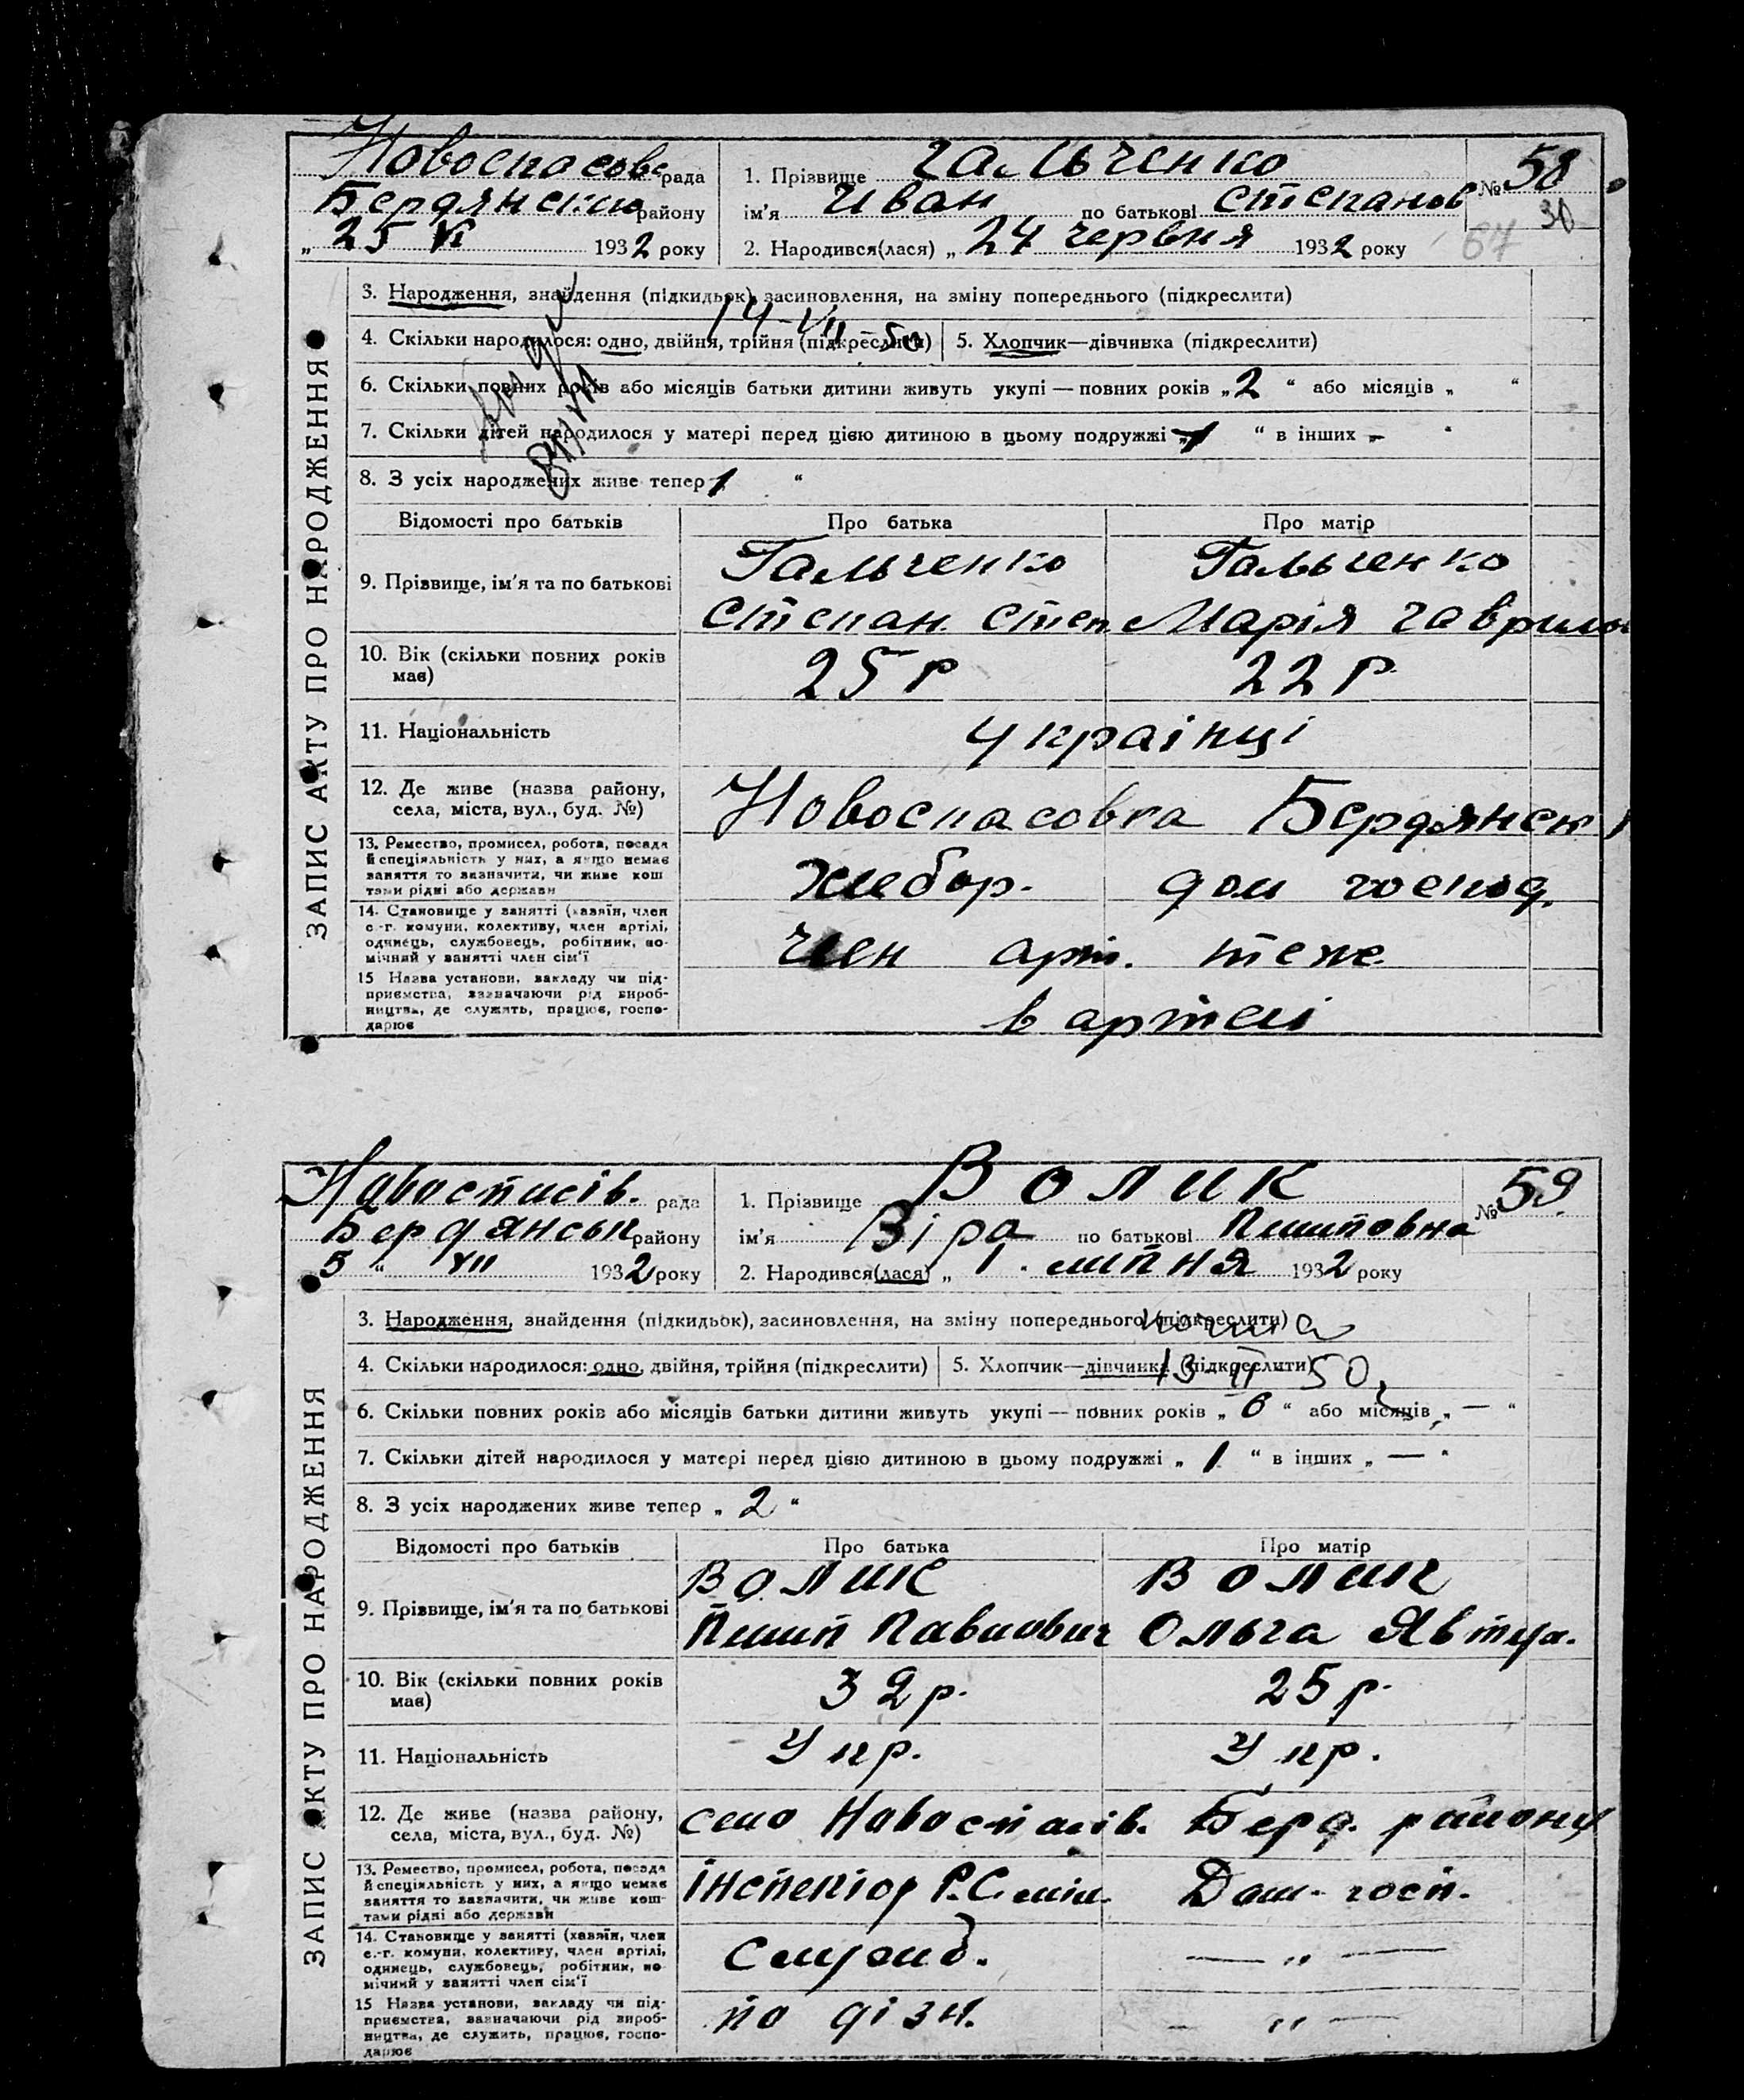 Новоспасовс рада
Бердянського району
„ 25 VI 1932 року
1. Прізвище Гальченко
ім'я Иван по батькові Степанов
2. Народився(лася) „ 24 червня 1932 року
№ 58
30
67
3. Народження, знайдення (підкидьок), засиновлення, на зміну попереднього (підкреслити)
14-VII 50
4. Скільки народилося: одно, двійня, трійня (підкреслити) 5. Хлопчик—дівчинка (підкреслити)
6. Скільки повних років або місяців батьки дитини живуть укупі — повних років „ 2 “ або місяців „ “
7. Скільки дітей народилося у матері перед цією дитиною в цьому подружжі „ 1 “ в інших „ – “
8. З усіх народжених живе тепер 1 “
Відомості про батьків Про батька Про матір
9. Прізвище, ім'я та по батькові
Гальченко Гальченко
Степан Степ Марія Гаврилов
10. Вік (скільки повних років має)
25 р 22 р.
11. Національність українці
12. Де живе (назва району, села, міста, вул., буд. №)
Новоспасовка Бердянск
13. Ремество, промисел, робота, посада
й спеціяльність у них, а якщо немає
заняття то зазначити, чи живе кош
тами рідні або держави
хлебор. дом господ.
14. Становище у занятті (хазяїн, член
с.-г. комуни, колективу, член артілі,
одинець, службовець, робітник, по-
мічний у занятті член сім'ї
член арт. теже
15 Назва установи, закладу чи під-
приємства, зазначаючи рід вироб-
ництва, де служить, працює, госпо-
дарює
в артелі
ЗАПИС АКТУ ПРО НАРОДЖЕННЯ
Новоспасів. рада
Бердянськ району
5 “ VII 1932 року
1. Прізвище Волик
ім'я Віра по батькові Пилиповна
2. Народився(лася) „ 1. липня 1932 року
№ 59
3. Народження, знайдення (підкидьок), засиновлення, на зміну попереднього (підкреслити)
4. Скільки народилося: одно, двійня, трійня (підкреслити) 5. Хлопчик—дівчинка (підкреслити)
50
6. Скільки повних років або місяців батьки дитини живуть укупі — повних років „ 6 “ або місяців „ — “
7. Скільки дітей народилося у матері перед цією дитиною в цьому подружжі „ 1 “ в інших „ — “
8. З усіх народжених живе тепер „ 2 “
Відомості про батьків Про батька Про матір
9. Прізвище, ім'я та по батькові
Волик Волик
Пилип Павлович Ольга Явтух.
10. Вік (скільки повних років має)
32 р. 25 р.
11. Національність Укр. Укр.
12. Де живе (назва району, села, міста, вул., буд. №)
село Новоспасів. Берд. району
13. Ремество, промисел, робота, посада
й спеціяльність у них, а якщо немає
заняття то зазначити, чи живе кош-
тами рідні або держави
інспектор Р.С. міл. Дом. госп.
14. Становище у занятті (хазяїн, член
с.-г. комуни, колективу, член артілі,
одинець, службовець, робітник, по-
мічний у занятті член сім'ї
Служб. — „ —
15 Назва установи, закладу чи під-
приємства, зазначаючи рід вироб-
ництва, де служить, працює, госпо-
дарює
по дізн. – „ —
ЗАПИС АКТУ ПРО НАРОДЖЕННЯ